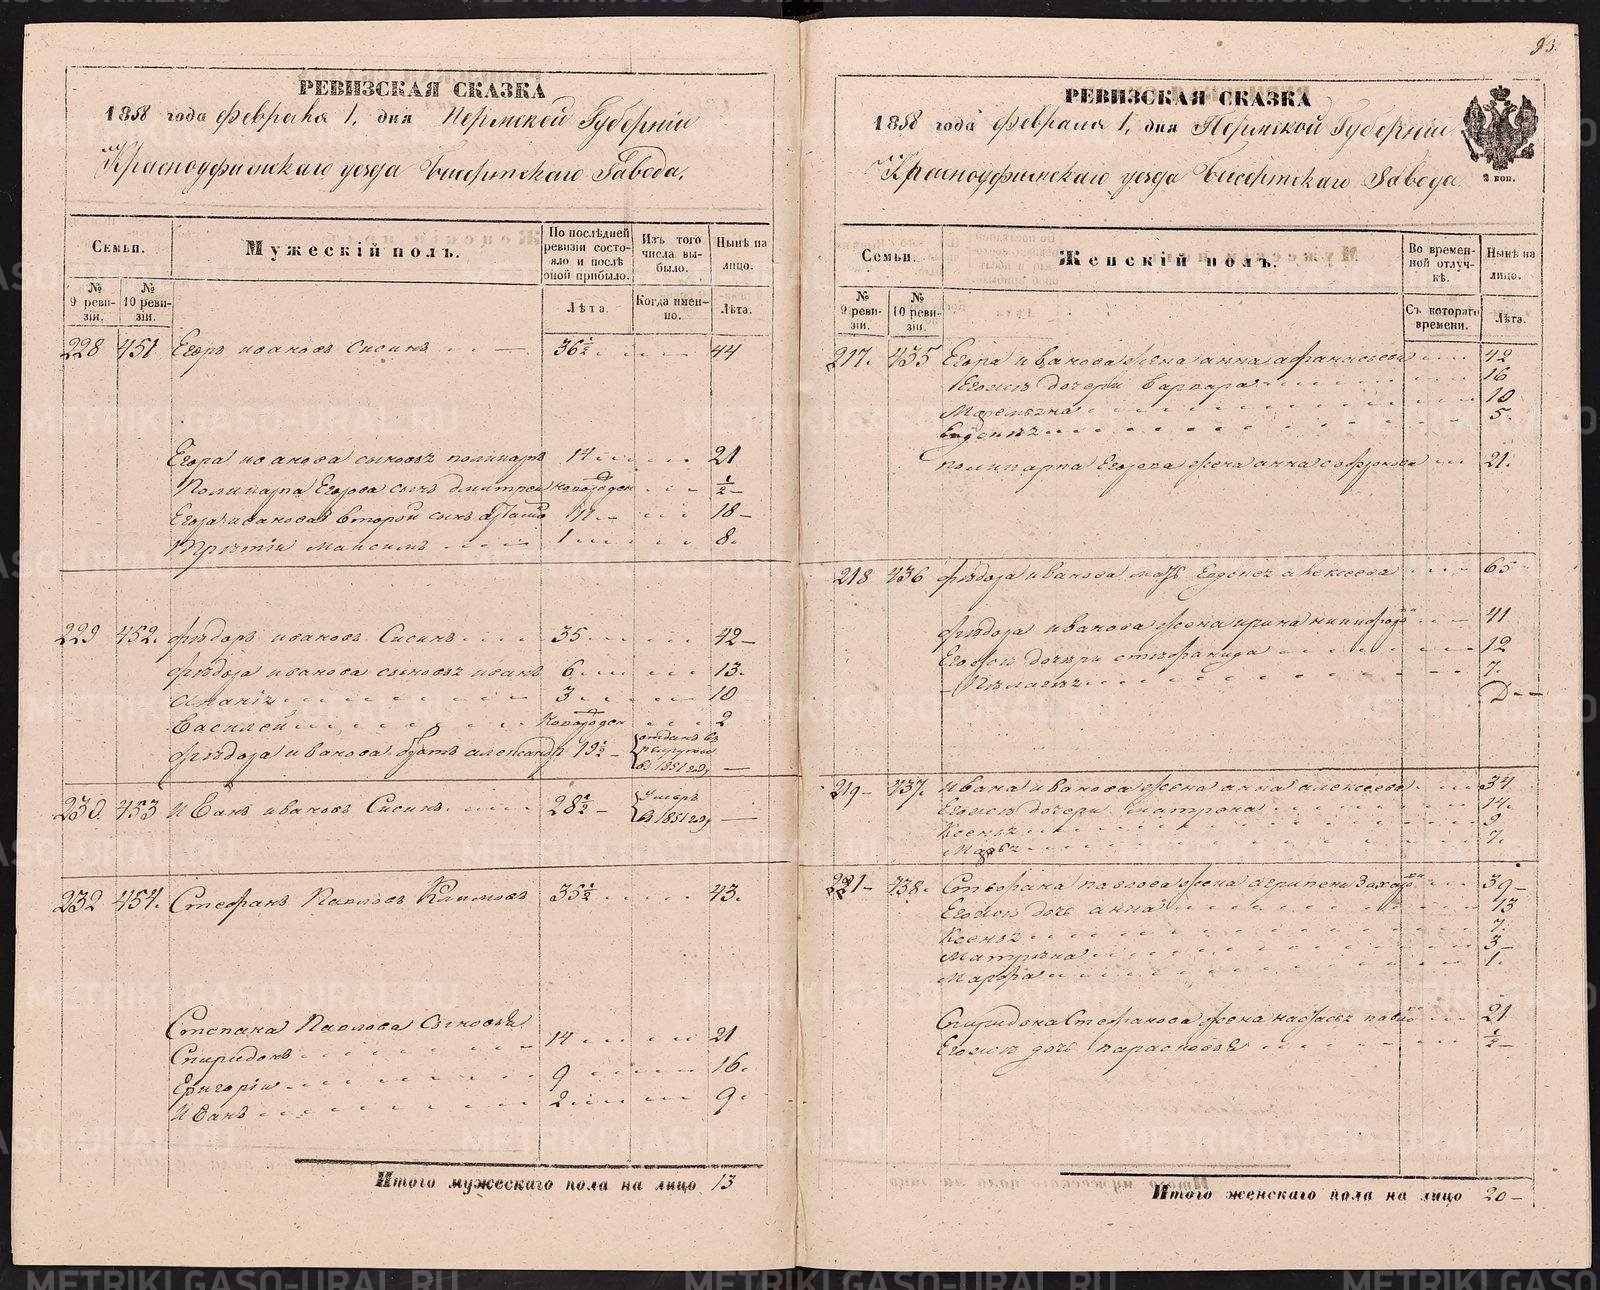 РЕВИЗСКАЯ СКАЗКА
1858 года февраля 1, дня Пермской Губерніи
Красноуфимскаго уезда Бисертскаго Завода.
Семьи.
Мужескій полъ.
По послѣдней ревизіи состояло и послѣ оной прибыло.
Изъ того числа выбыло.
Нынѣ на лицо.
№ 9 ревизіи.
№ 10 ревизіи.
Лѣта.
Когда именно.
Лѣта.
228 451 Егоръ Ивановъ Сисинъ 36½ 44
Егора Иванова сыновья Поликарпъ 14 21
Поликарпа Егорова сынъ Дмитрей новорожден ½
Егора Иванова второй сынъ 11 18
Третій Максимъ 1 8.
229 452. Фёдоръ Ивановъ Сисинъ 35 42
Фёдора Иванова сыновья Иванъ 6 13.
Ананій 3 10
Василей новорожден 2
Фёдора Иванова братъ Александр 19½ отданъ въ рекруты в 1851 году
230. 453 Иванъ Ивановъ Сисинъ 28½ умеръ в 1851 году
232 454. Стефанъ Павловъ Климовъ 35½ 43.
Степана Павлова сыновья
Спиридонъ 14 21
Григорій 9 16.
Иванъ 2 9.
Итого мужескаго пола на лицо 13
93.
РЕВИЗСКАЯ СКАЗКА
1858 года февраля 1, дня Пермской Губерніи
Красноуфимскаго уезда Бисертскаго Завода
2 коп.
Семьи.
Женскій полъ.
Во временной отлучкѣ.
Нынѣ на лицо.
№ 9 ревизіи.
№ 10 ревизіи.
Съ котораго времени.
Лѣта.
217. 435 Егора Иванова жена Анна Афанасьева 42
Его же дочери Варвара 16
Маремьяна 10
Евдокия 5.
Поликарпа Егорова жена Анна Софронова 21.
218 436 Фёдора Иванова мать Евдокея Алексеева 65
Фёдора Иванова жена Ирина 41
Его же дочери Стефанида 12
Пелагея 7.
219 437. Ивана Иванова жена Анна Алексеева 34
Его же дочери Матрона 14.
Ксенья 9
Марья 7.
221 438. Стефана Павлова жена Агрипена 39
Его же дочь Анна 13
Ксенья 7.
Матрёна 3
Марфа 1.
Спиридона Стефанова жена Настасья 21
Его же дочь Парасковья ½
Итого женскаго пола на лицо 20